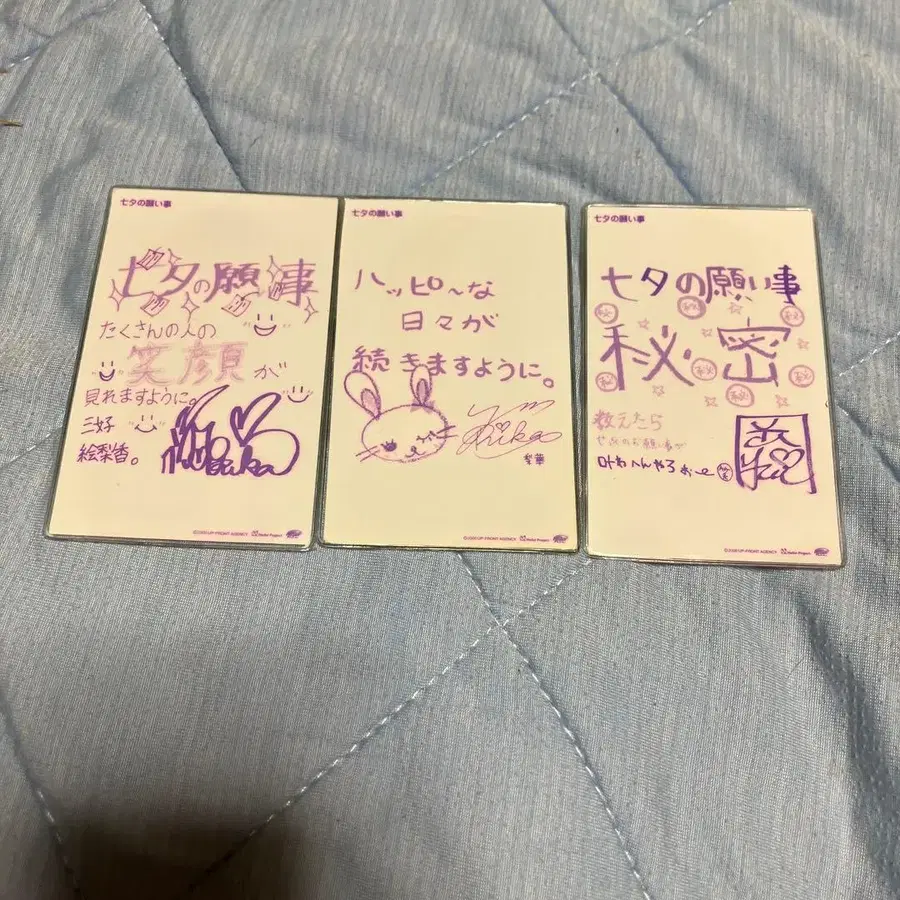 七夕の願い事
七夕の願い事
たくさんの人の
笑顔が
見れますように。
三好
絵梨香。
©2006 UP-FRONT AGENCY Hello! Project
七夕の願い事
ハッピ〜な
日々が
続きますように。
梨華
©2006 UP-FRONT AGENCY Hello! Project
七夕の願い事
七夕の願い事
秘密
教えたら
お願い事が
叶わへんやろぉ〜
©2006 UP-FRONT AGENCY Hello! Project